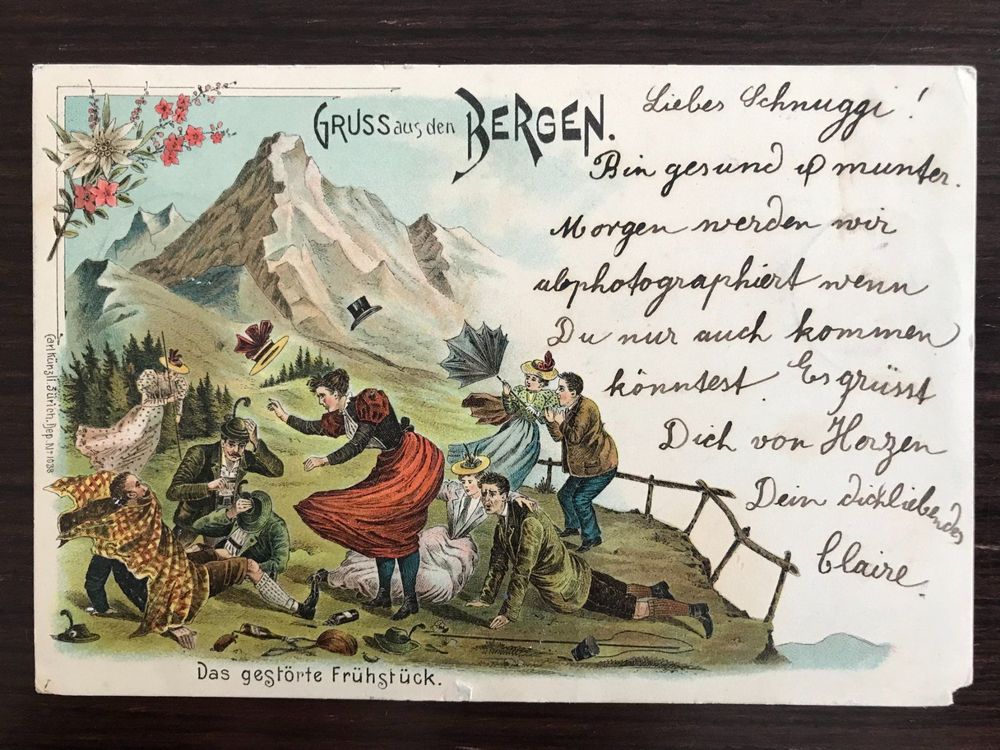 GRUSS aus den BERGEN.
Liebes Schnuggi!
Bin gesund & munter.
Morgen werden wir
abphotographiert wenn
Du nur auch kommen
könntest. Es grüsst
Dich von Herzen
Dein dichliebendes
Claire.
Carl Künzli, Zürich. Dep. No 1038
Das gestörte Frühstück.